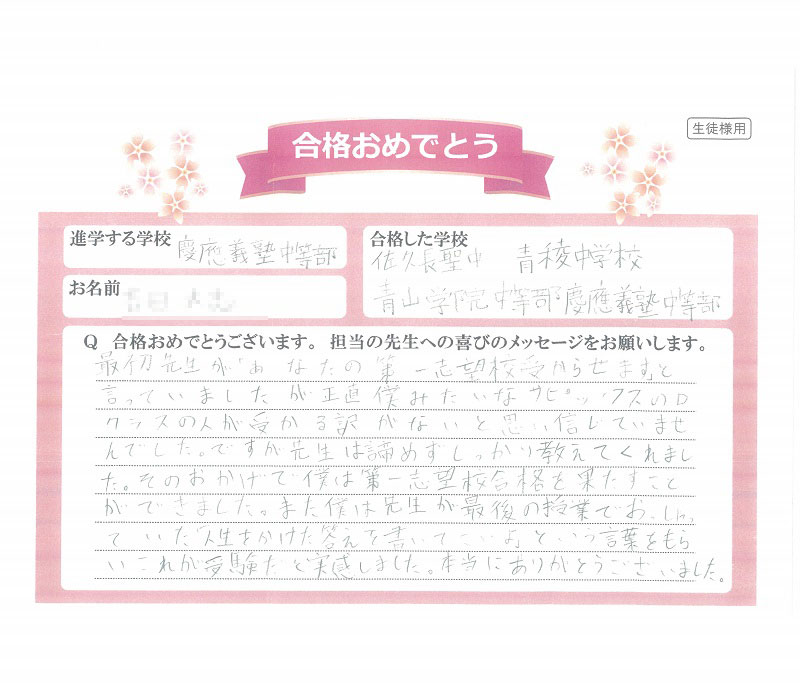 生徒様用
合格おめでとう
進学する学校 慶應義塾中等部
合格した学校
佐久長聖中 青稜中学校
青山学院中等部 慶應義塾中等部
お名前
Q 合格おめでとうございます。担当の先生への喜びのメッセージをお願いします。
最初先生が「あなたの第一志望校受からせますと
言っていましたが正直僕みたいなサピックスのD
クラスの人が受かる訳がないと思い信じていませ
んでした。ですが先生は諦めずしっかり教えてくれまし
た。そのおかげで僕は第一志望校合格を果たすこと
ができました。また僕は先生が最後の授業でおっしゃっ
ていた「人生をかけた答えを書いてこいよ」という言葉をもら
いこれが受験だと実感しました。本当にありがとうございました。